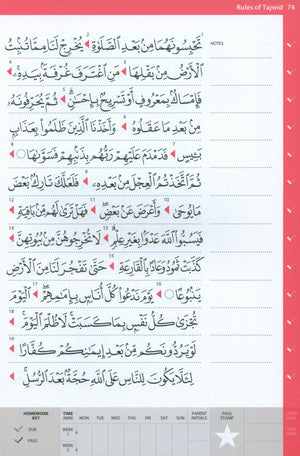 Rules of Tajwid 74
NOTES
تَحْبِسُونَهُمَا مِنۢ بَعْدِ ٱلصَّلَوٰةِ 2 يُخْرِجْ لَنَا مِمَّا تُنۢبِتُ
ٱلْأَرْضُ مِنۢ بَقْلِهَا 3 مَنِ ٱغْتَرَفَ غُرْفَةًۢ بِيَدِهِۦ 4
فَإِمْسَاكٌۢ بِمَعْرُوفٍ أَوْ تَسْرِيحٌۢ بِإِحْسَٰنٍ 5 ثُمَّ يُحَرِّفُونَهُۥ
مِنۢ بَعْدِ مَا عَقَلُوهُ 6 وَأَخَذْنَا ٱلَّذِينَ ظَلَمُوا۟ بِعَذَابٍۭ
بَـِٔيسٍۭ 7 فَدَمْدَمَ عَلَيْهِمْ رَبُّهُم بِذَنۢبِهِمْ فَسَوَّىٰهَا 8
ثُمَّ ٱتَّخَذْتُمُ ٱلْعِجْلَ مِنۢ بَعْدِهِۦ 9 فَلَعَلَّكَ تَارِكٌۢ بَعْضَ
مَا يُوحَىٰٓ 10 وَأَعْرَضَ عَنۢ بَعْضٍ 11 فَهَلْ تَرَىٰ لَهُم مِّنۢ بَاقِيَةٍ 12
فَيَسُبُّوا۟ ٱللَّهَ عَدْوًۢا بِغَيْرِ عِلْمٍ 13 لَا تُخْرِجُوهُنَّ مِنۢ بُيُوتِهِنَّ 14
كَذَّبَتْ ثَمُودُ وَعَادٌۢ بِٱلْقَارِعَةِ 15 حَتَّىٰ تَفْجُرَ لَنَا مِنَ ٱلْأَرْضِ
يَنۢبُوعًا 16 يَوْمَ نَدْعُوا۟ كُلَّ أُنَاسٍۭ بِإِمَٰمِهِمْ 17 ٱلْيَوْمَ
تُجْزَىٰ كُلُّ نَفْسٍۭ بِمَا كَسَبَتْ لَا ظُلْمَ ٱلْيَوْمَ 18
لَوْ يَرُدُّونَكُم مِّنۢ بَعْدِ إِيمَٰنِكُمْ كُفَّارًا 19
لِئَلَّا يَكُونَ لِلنَّاسِ عَلَى ٱللَّهِ حُجَّةٌۢ بَعْدَ ٱلرُّسُلِ
HOMEWORK KEY TIME (MIN) MON TUE WED THU FRI SAT SUN PARENT INITIALS PASS STAMP
DUE WEEK 1
PASS WEEK 2